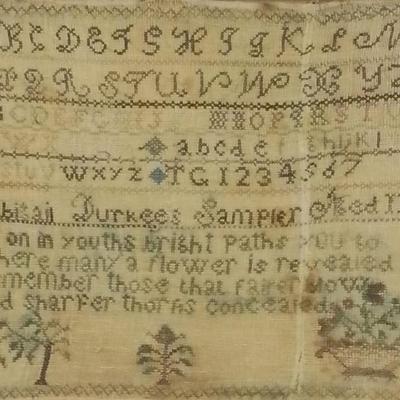 B C D E F G H I J K L M
P Q R S T U V W X Y Z
C D E F G H I J M N O P Q R S T
a b c d e f g h i j k l
s t u v w x y z T G 1 2 3 4 5 6 7
bitail Durkees Sampler Aged 11
on in youths bright paths you to
here many a flower is revealed
member those that fairer blow
d sharper thorns concealed